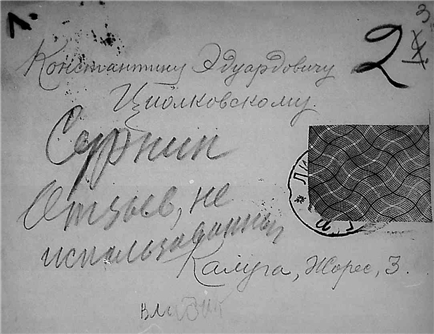 1.
3
2 X
Константину Эдуардовичу
Циолковскому.
Сурнин
Отзыв, не
использованный
Калуга, Жорес, 3.